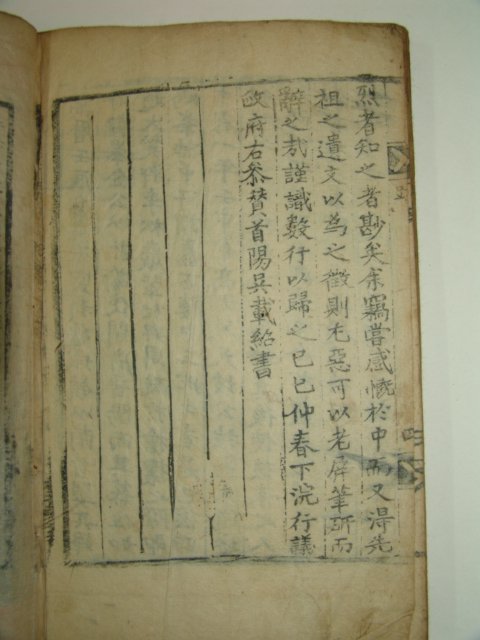 烈者知之者尠矣余竊嘗感慨於中而又淂先
祖之遺文以為之徵則尤惡可以老屏筆硏而
辭之哉謹識數行以歸之己巳仲春下浣行議
政府右叅賛首陽吳載紹書